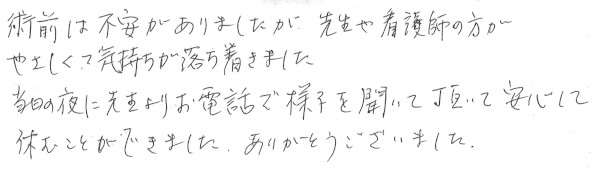 術前は不安がありましたが 先生や看護師の方が
やさしくて気持ちが落ち着きました
当日の夜に先生よりお電話で様子を聞いて頂いて安心して
休むことができました. ありがとうございました.